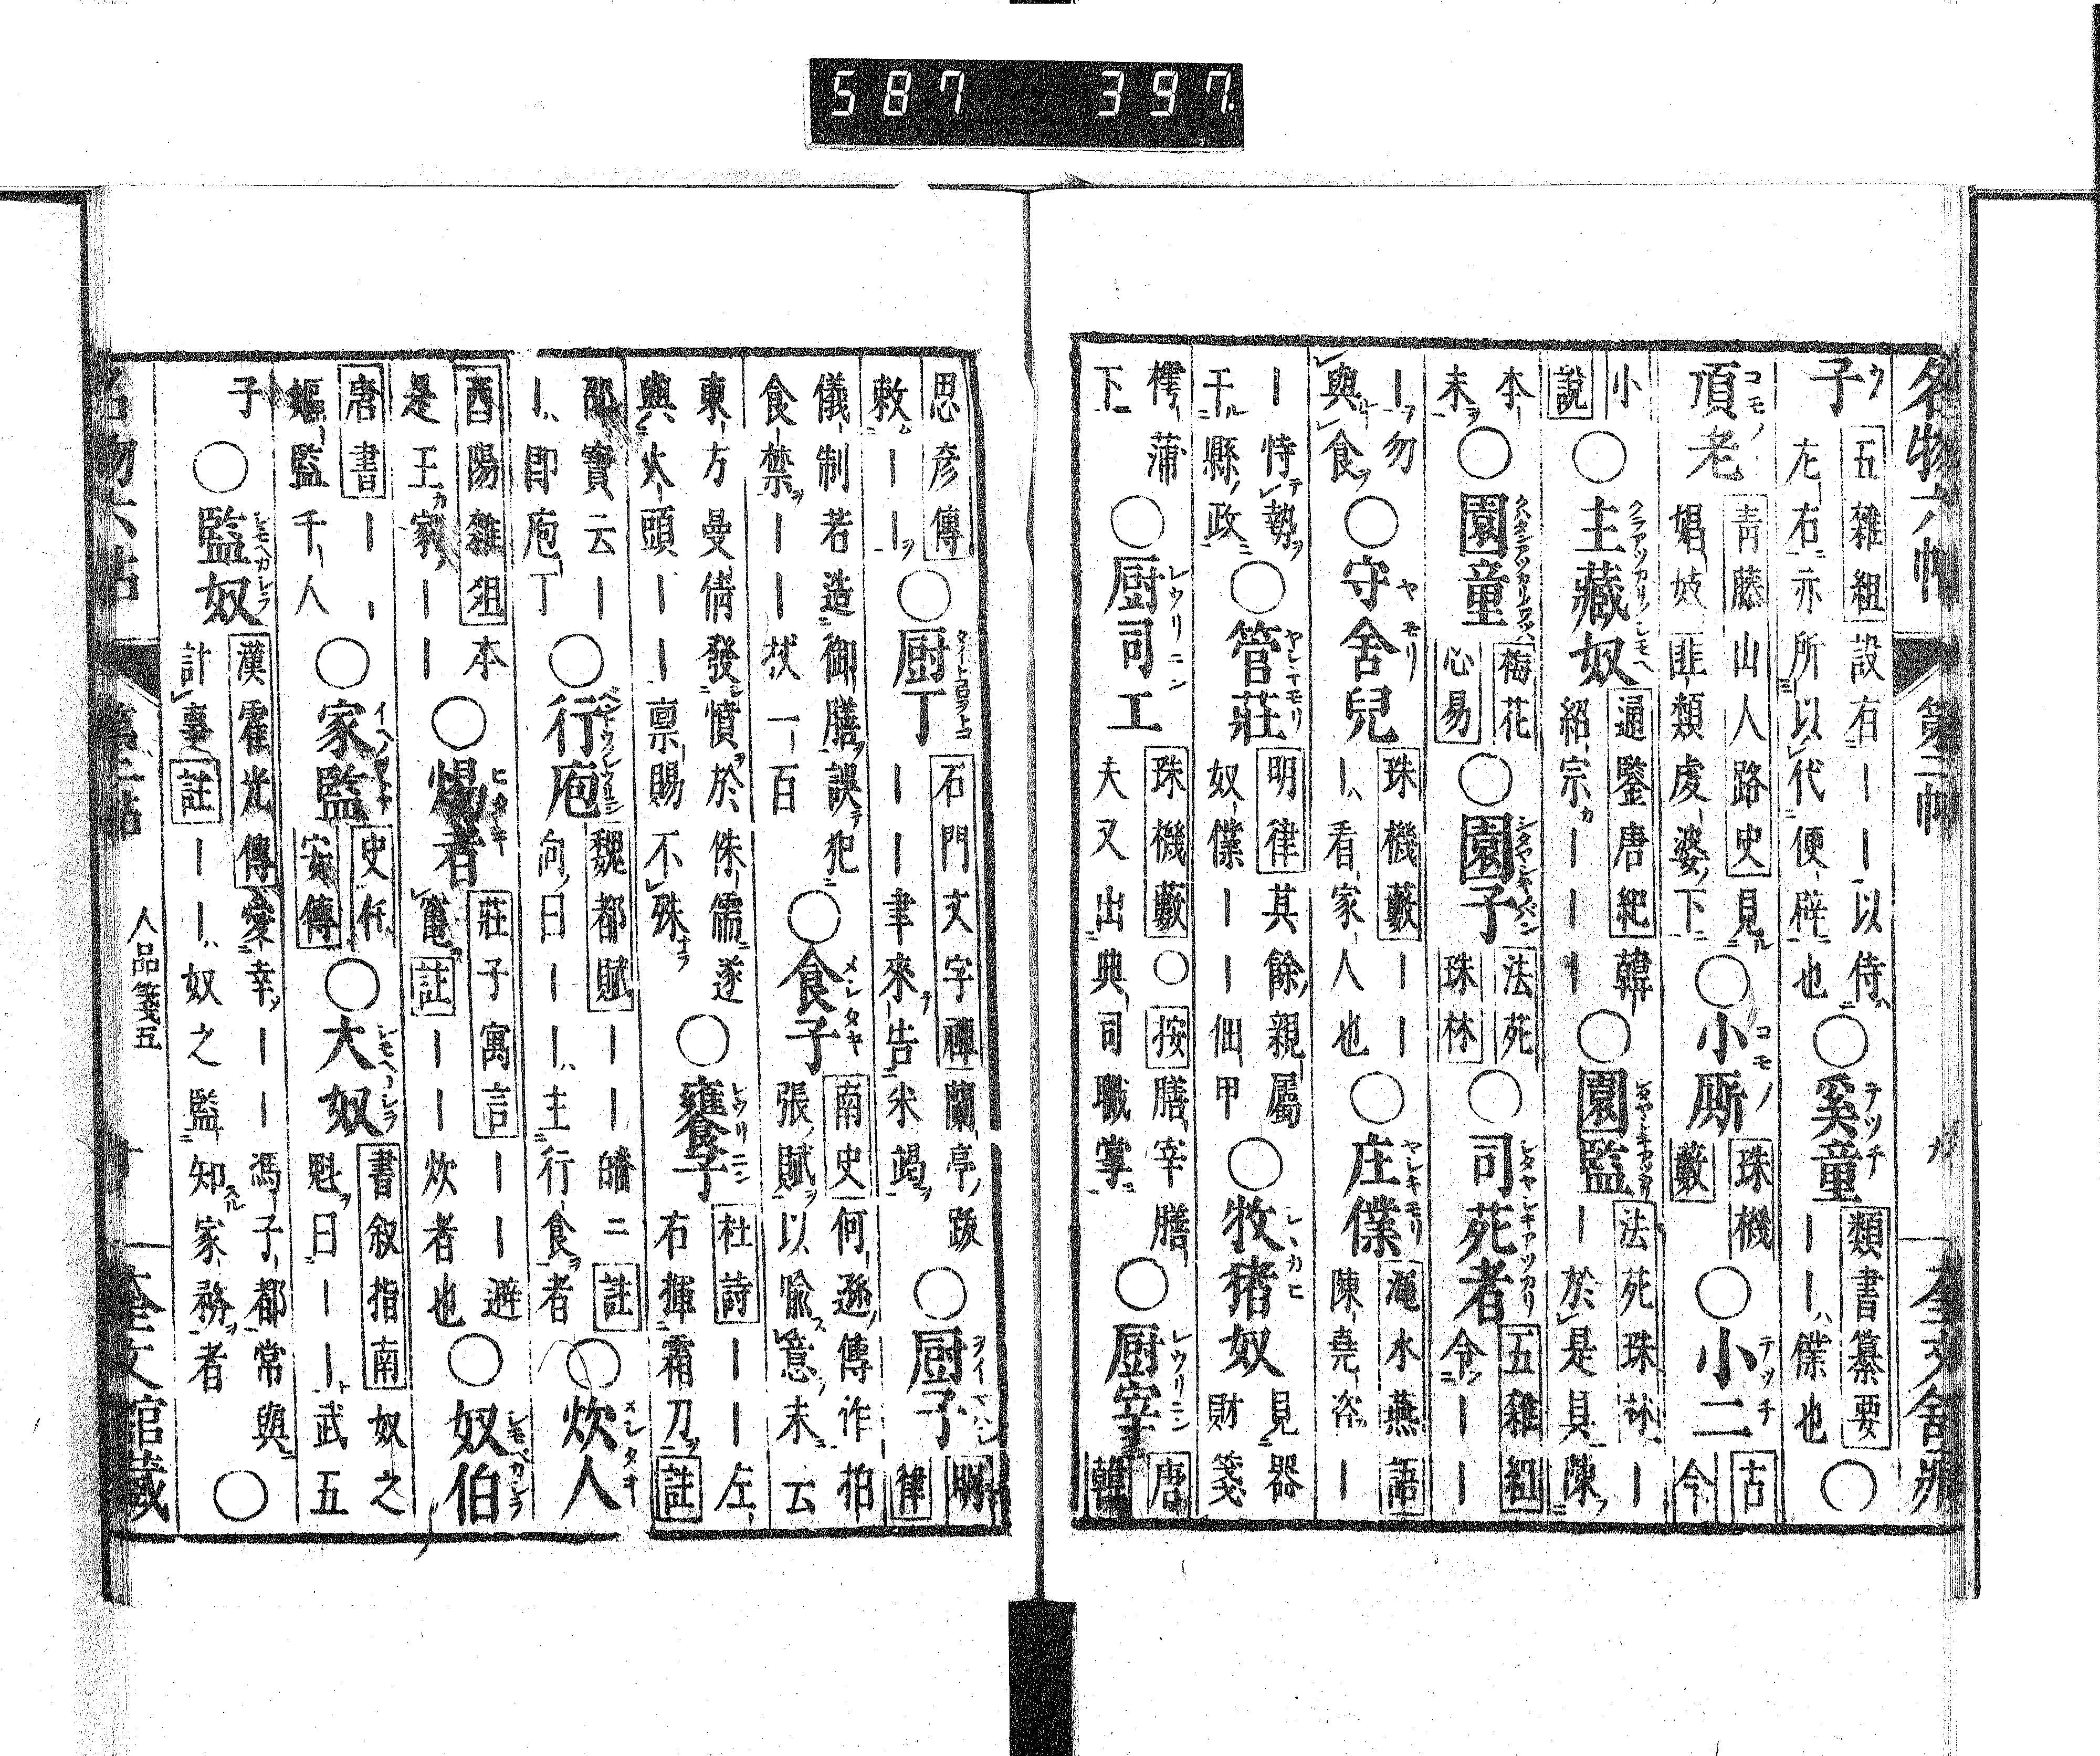 名物六帖 第二帖 九 奎文館藏
子 五雜組設有｜｜以侍左右亦所以代便辟也 ○奚童 類書纂要｜｜僕也 ○
頂老 青藤山人路史見娼妓韭類虔婆下 ○小厮 珠機藪 ○小二 古今
小說 ○主藏奴 通鑒唐紀韓紹宗｜｜｜ ○園監 法苑珠林｜｜於是具陳
本末 ○園童 梅花心易 ○園子 法苑珠林 ○司苑者 五雜組令｜｜
｜勿與食 ○守舍兒 珠機藪｜｜｜看家人也 ○庄僕 澠水燕語陳堯咨｜
｜恃勢干縣政 ○管莊 明律其餘親屬奴僕｜｜佃甲 ○牧猪奴 見器財箋
樗蒲下 ○厨司工 珠機藪○按膳宰膳夫又出典司職掌 ○厨宰 唐韓
思彦傳敕｜｜ ○厨丁 石門文字禪蘭亭跋｜｜聿來告米竭 ○厨子 明律
儀制若造御膳誤犯食禁｜｜杖一百 ○食子 南史何遜傳作拍張賦以喻意末云
東方曼倩發憤於侏儒遂與火頭｜｜稟賜不殊 ○饔子 杜詩｜｜左右揮霜刀註
邵寶云｜｜即庖丁 ○行庖 魏都賦｜｜皤ニ註向曰｜｜主行食者 ○炊人
酉陽雜俎本是王家｜｜ ○煬者 莊子寓言｜｜避竈註｜｜炊者也 ○奴伯
唐書｜｜嫗監千人 ○家監 史任安傳 ○大奴 書叙指南奴之魁曰｜｜武五
子 ○監奴 漢霍光傳愛幸｜｜馮子都常與計事註｜｜奴之監知家務者 ○
名物六帖 第二帖 人品箋五 十 奎文館藏
587 397